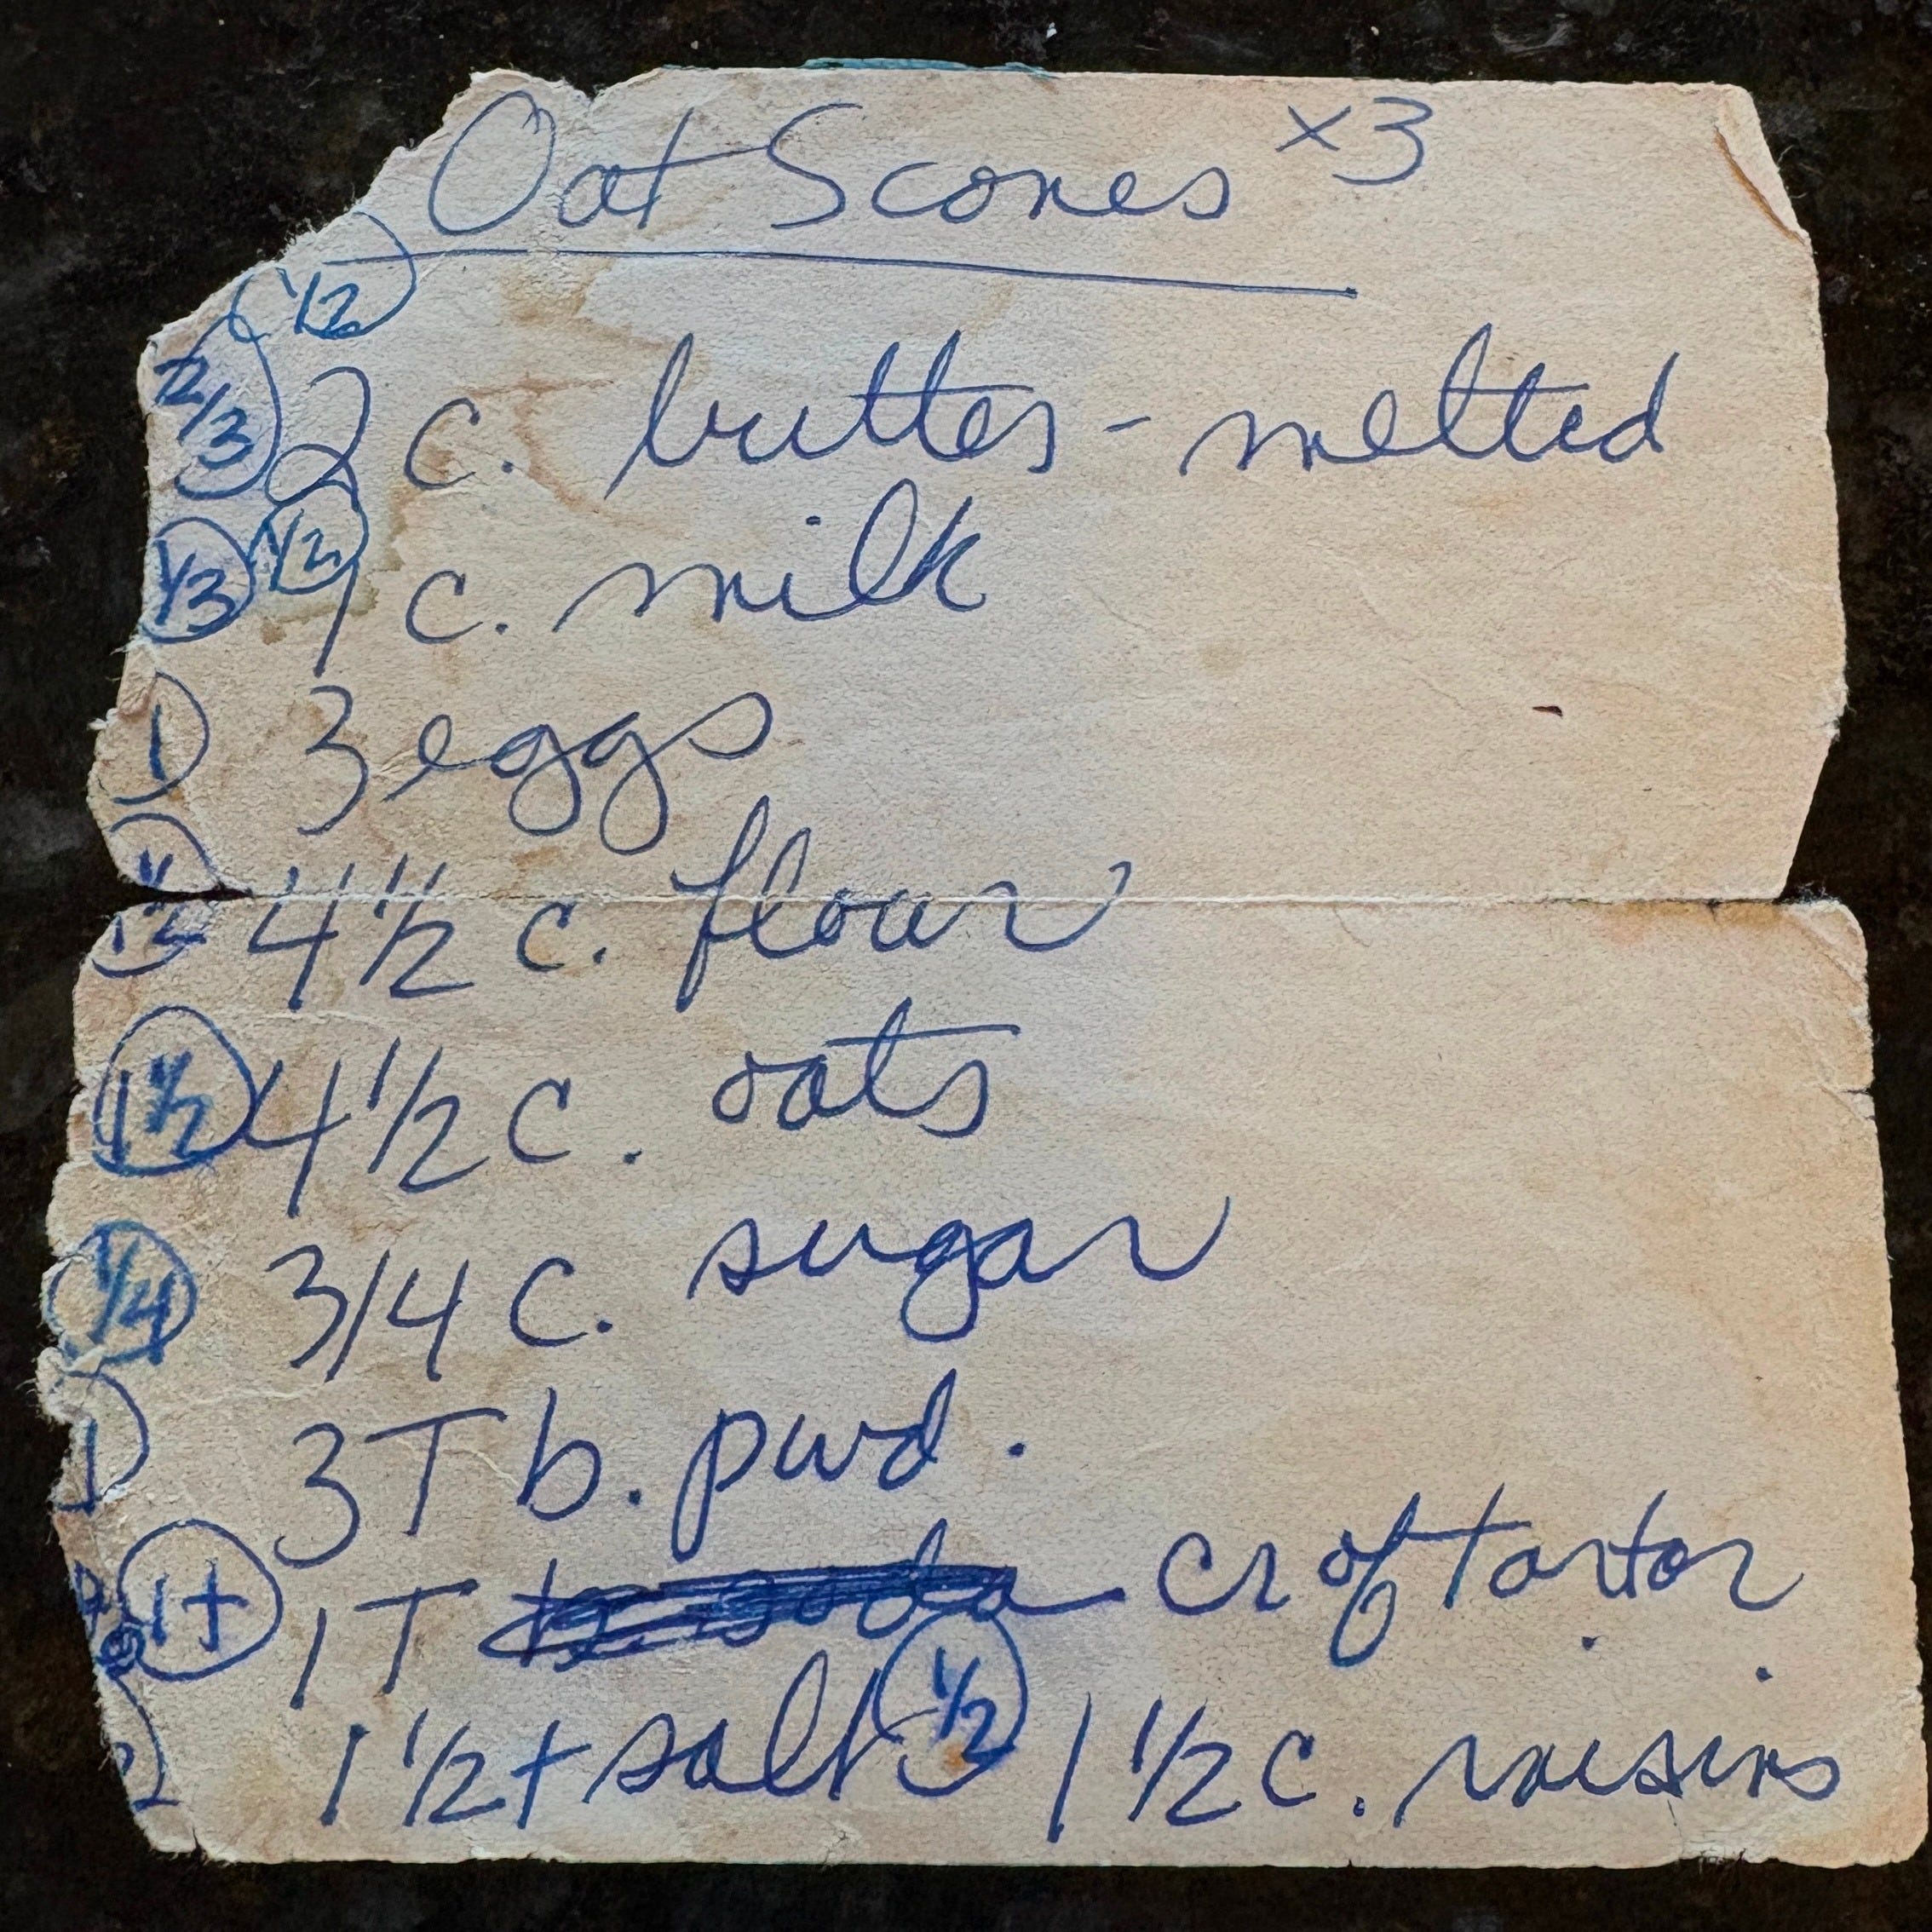 Oat Scones x3
1/2
2/3 2 c. butter - melted
1/3 1/2 1 c. milk
1 3 eggs
1 1/2 4 1/2 c. flour
1 1/2 4 1/2 c. oats
1/4 3/4 c. sugar
1 3T b. pwd.
1t 1T cr of tartar
1 1/2 t salt 1/2 1 1/2 c. raisins